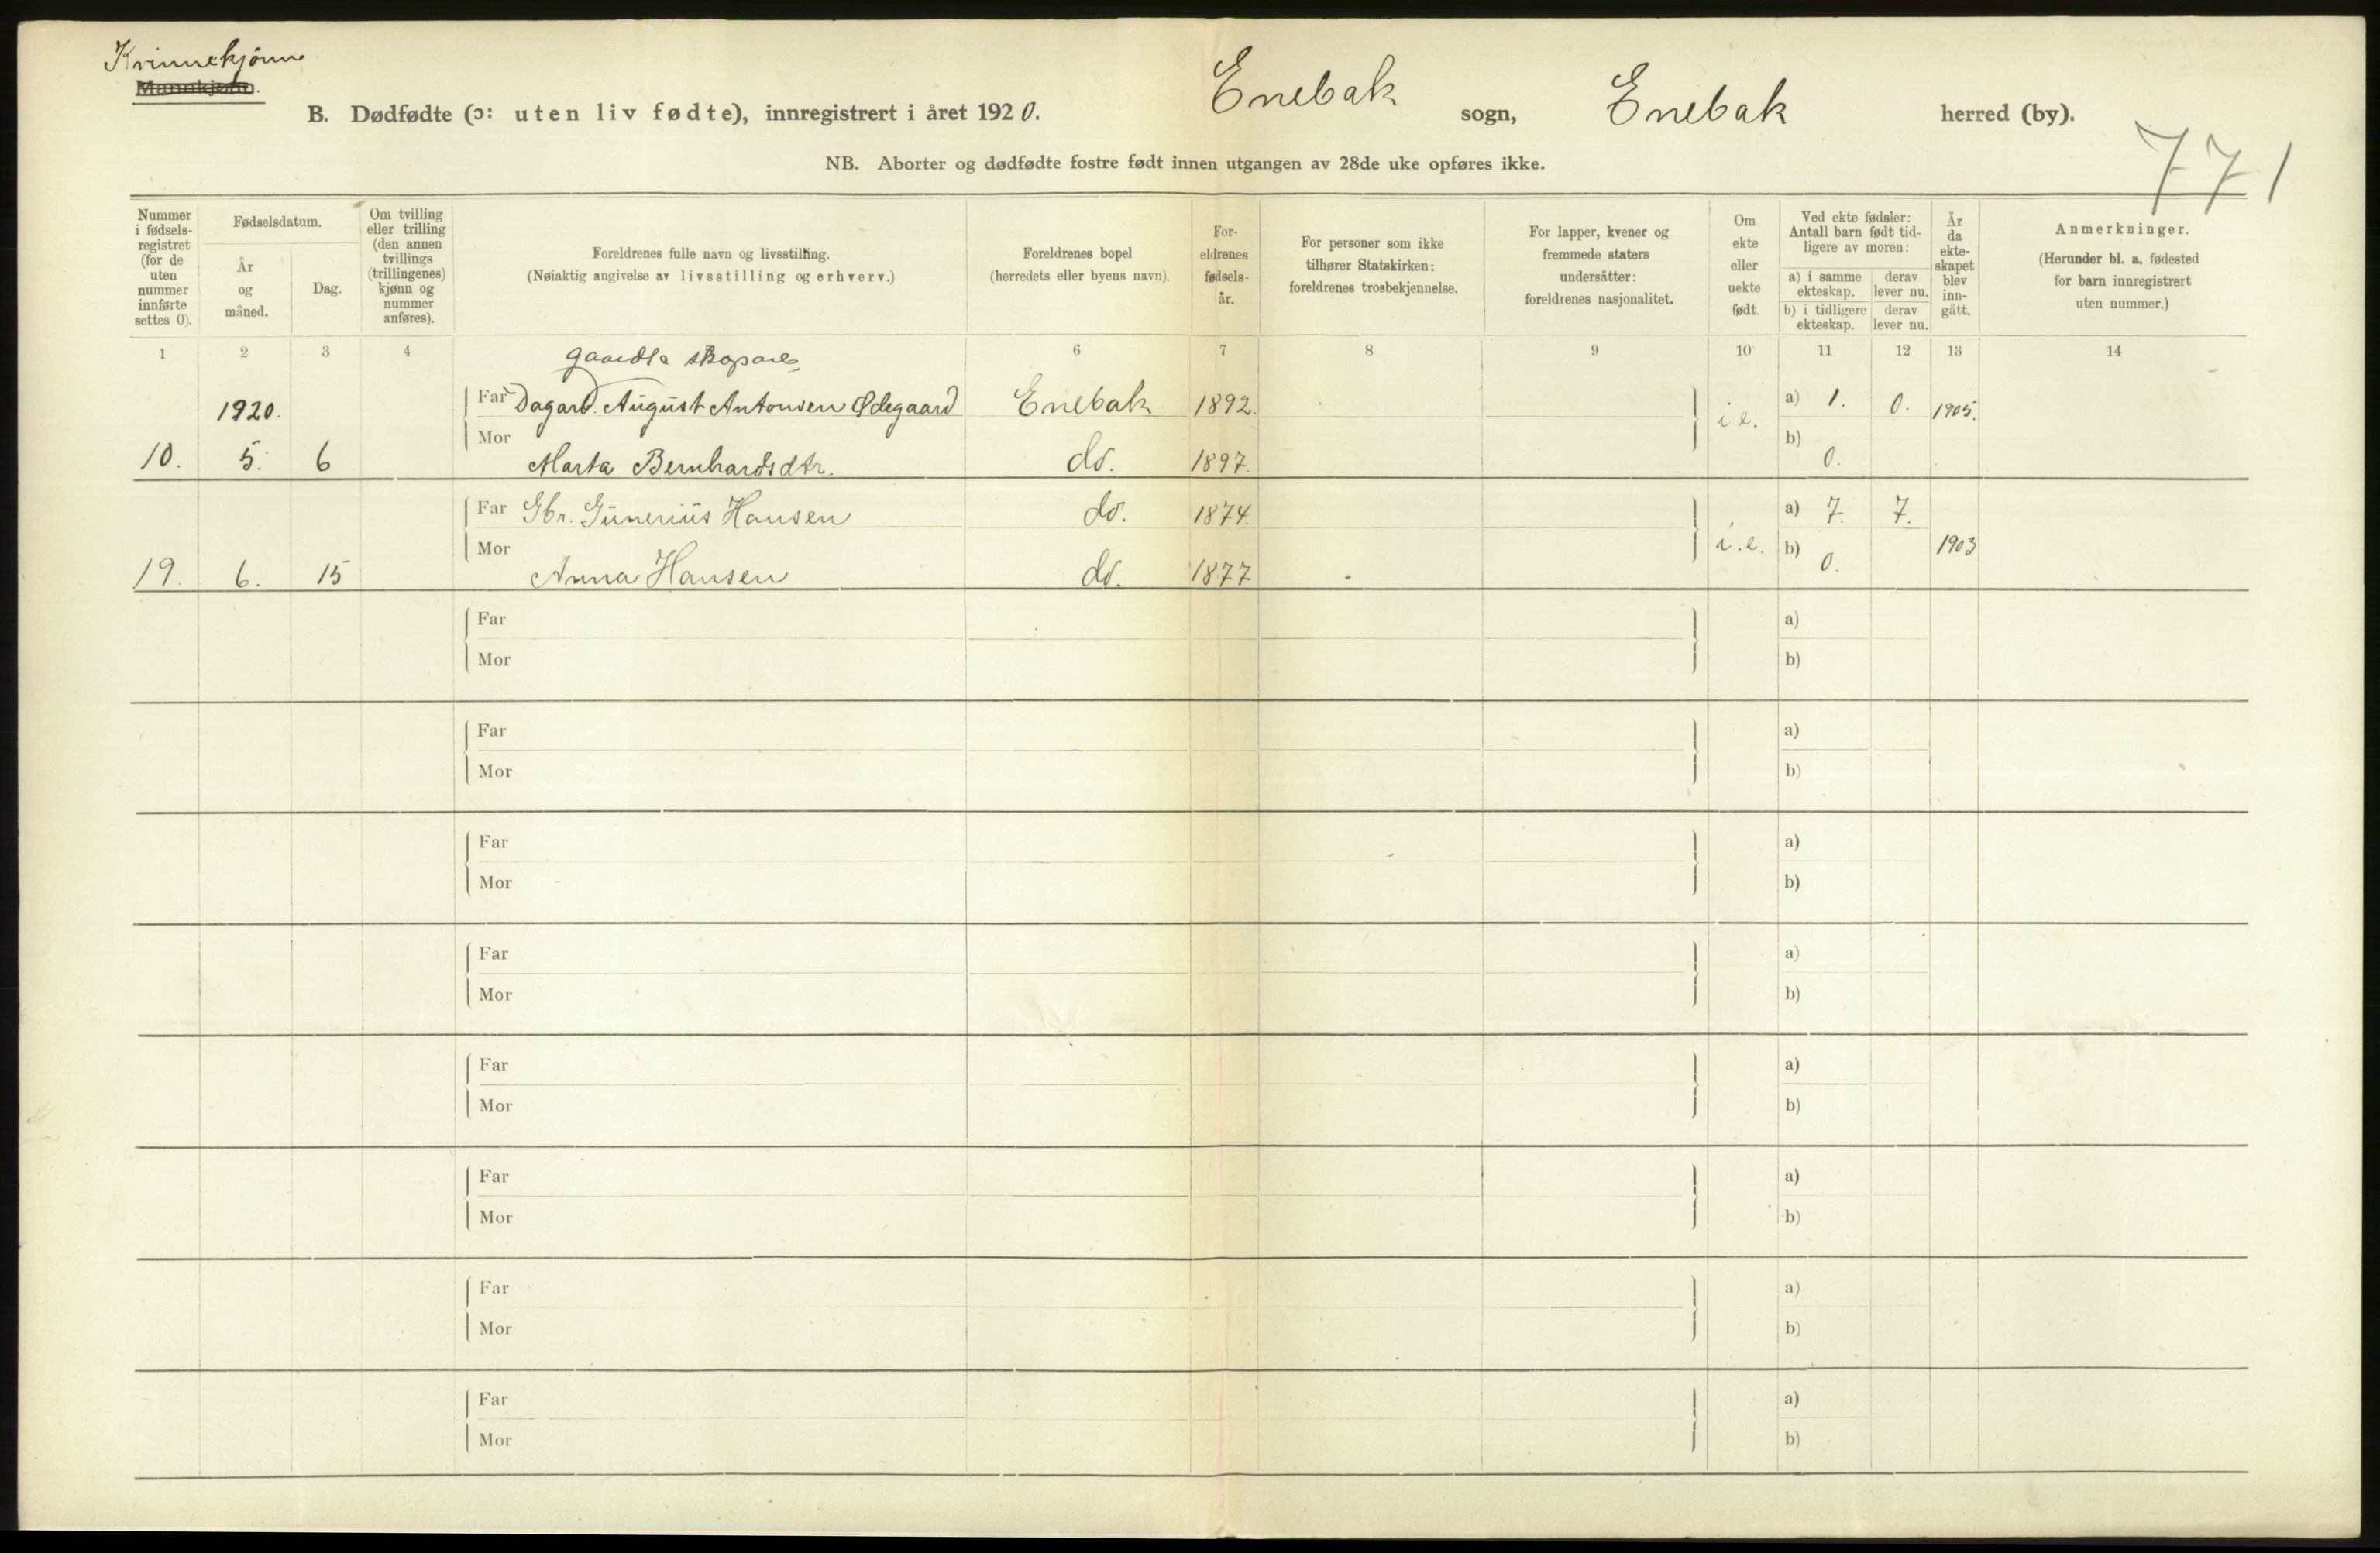 Kvinnekjönn
Mannkjønn.
B. Dødfødte (ɔ: uten liv fødte), innregistrert i året 1920. Enebak sogn, Enebak herred (by).
771
NB. Aborter og dødfødte fostre født innen utgangen av 28de uke opføres ikke.
Nummer i fødsels-registret (for de uten nummer innførte settes 0).
Fødselsdatum.
År og måned.
Dag.
Om tvilling eller trilling (den annen tvillings (trillingenes) kjønn og nummer anføres).
Foreldrenes fulle navn og livsstilling.
(Nøiaktig angivelse av livsstilling og erhverv.)
Foreldrenes bopel
(herredets eller byens navn).
For-eldrenes fødsels-år.
For personer som ikke tilhører Statskirken: foreldrenes trosbekjennelse.
For lapper, kvener og fremmede staters undersåtter: foreldrenes nasjonalitet.
Om ekte eller uekte født.
Ved ekte fødsler: Antall barn født tid-ligere av moren:
a) i samme ekteskap.
derav lever nu.
b) i tidligere ekteskap.
derav lever nu.
År da ekte-skapet blev inn-gått.
Anmerkninger.
(Herunder bl. a. fødested for barn innregistrert uten nummer.)
1 2 3 4 6 7 8 9 10 11 12 13 14
1920. Far Dagarb. August Antonsen Ødegaard Enebak 1892. i e. a) 1. 0. 1905.
10. 5. 6 Mor Marta Bernhardsdtr. do. 1897. b) 0.
Far Gbr. Gunerius Hansen do. 1874. i.e. a) 7. 7. 1903
19. 6. 15 Mor Anna Hansen do. 1877 b) 0.
Far a)
Mor b)
Far a)
Mor b)
Far a)
Mor b)
Far a)
Mor b)
Far a)
Mor b)
Far a)
Mor b)
Far a)
Mor b)
Far a)
Mor b)